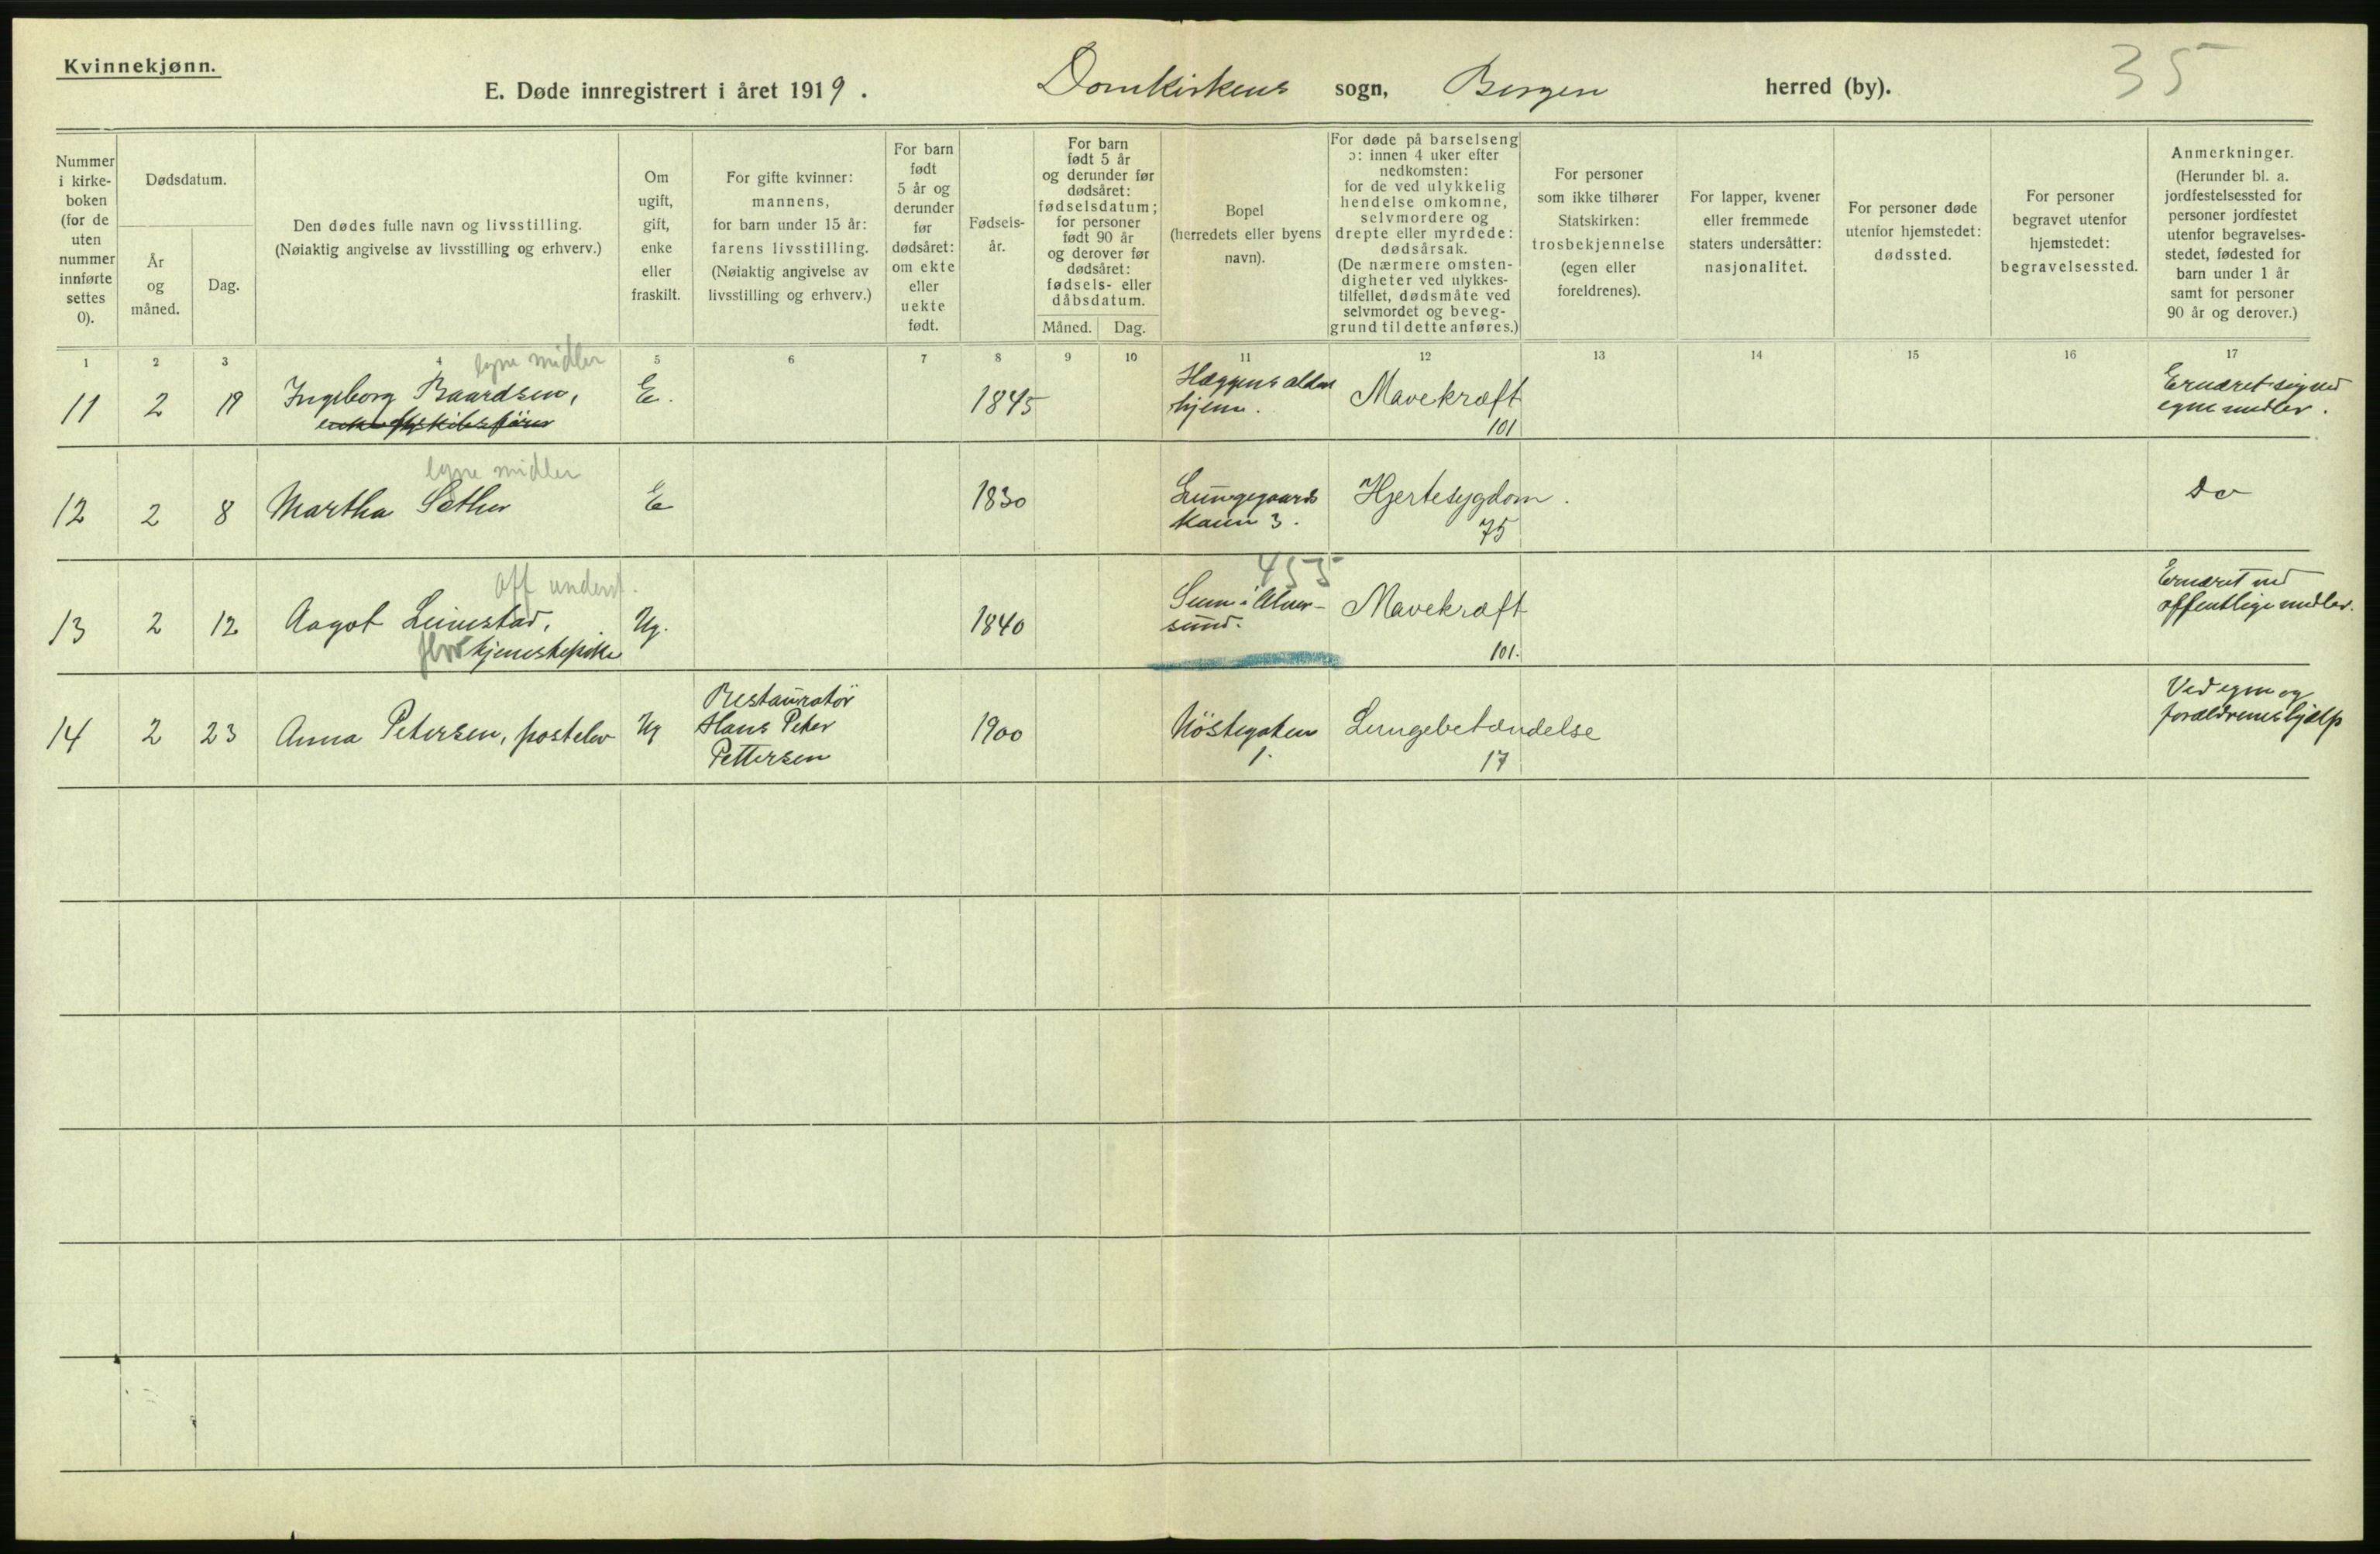 Kvinnekjønn.
E. Døde innregistrert i året 1919. Domkirkens sogn, Bergen herred (by). 35
Nummer i kirke- boken (for de uten nummer innførte settes 0).
Dødsdatum.
År og måned.
Dag.
Den dødes fulle navn og livsstilling.
(Nøiaktig angivelse av livsstilling og erhverv.)
Om ugift, gift, enke eller fraskilt.
For gifte kvinner: mannens, for barn under 15 år: farens livsstilling. (Nøiaktig angivelse av livsstilling og erhverv.)
For barn født 5 år og derunder før dødsåret: om ekte eller uekte født.
Fødsels- år.
For barn født 5 år og derunder før dødsåret: fødselsdatum; for personer født 90 år og derover før dødsåret: fødsels- eller dåbsdatum.
Måned. Dag.
Bopel (herredets eller byens navn).
For døde på barselseng ɔ: innen 4 uker efter nedkomsten: for de ved ulykkelig hendelse omkomne, selvmordere og drepte eller myrdede: dødsårsak. (De nærmere omsten- digheter ved ulykkes- tilfellet, dødsmåte ved selvmordet og beveg- grund til dette anføres.)
For personer som ikke tilhører Statskirken: trosbekjennelse (egen eller foreldrenes).
For lapper, kvener eller fremmede staters undersåtter: nasjonalitet.
For personer døde utenfor hjemstedet: dødssted.
For personer begravet utenfor hjemstedet: begravelsessted.
Anmerkninger. (Herunder bl. a. jordfestelsessted for personer jordfestet utenfor begravelses- stedet, fødested for barn under 1 år samt for personer 90 år og derover.)
1 2 3 4 5 6 7 8 9 10 11 12 13 14 15 16 17
egne midler
11 2 19 Ingeborg Baardsen, E. 1845 Hæggens alders hjem. Mavekræft 101 Ernæret sig ved egne midler.
egne midler
12 2 8 Martha Sæther E 1830 Lungegaards kaien 3. Hjertesygdom. 75 Do
off underst.
13 2 12 Aagot Leirestad, tjenestepike Ug. 1840 455 Seim i Alver- sund. Mavekræft 101. Ernæret ved offentlige midler.
14 2 23 Anna Petersen, postelev Ug Restauratör Hans Peter Pettersen 1900 Nöstegaten 1. Lungebetændelse 17 Ved egen og forældrenes hjælp